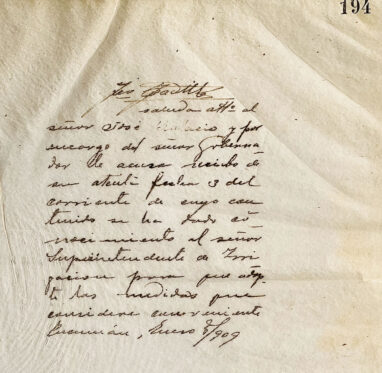 194
saluda atto al
señor José y por
encargo del señor Goberna-
dor le acusa recibo de
su atenta fecha 3 del
corriente de cuyo con
tenido se ha dado co
nocimiento al señor
Superintendente de Irri
gacion para que adop
te las medidas que
considere conveniente
Tucumán, Enero 8/909